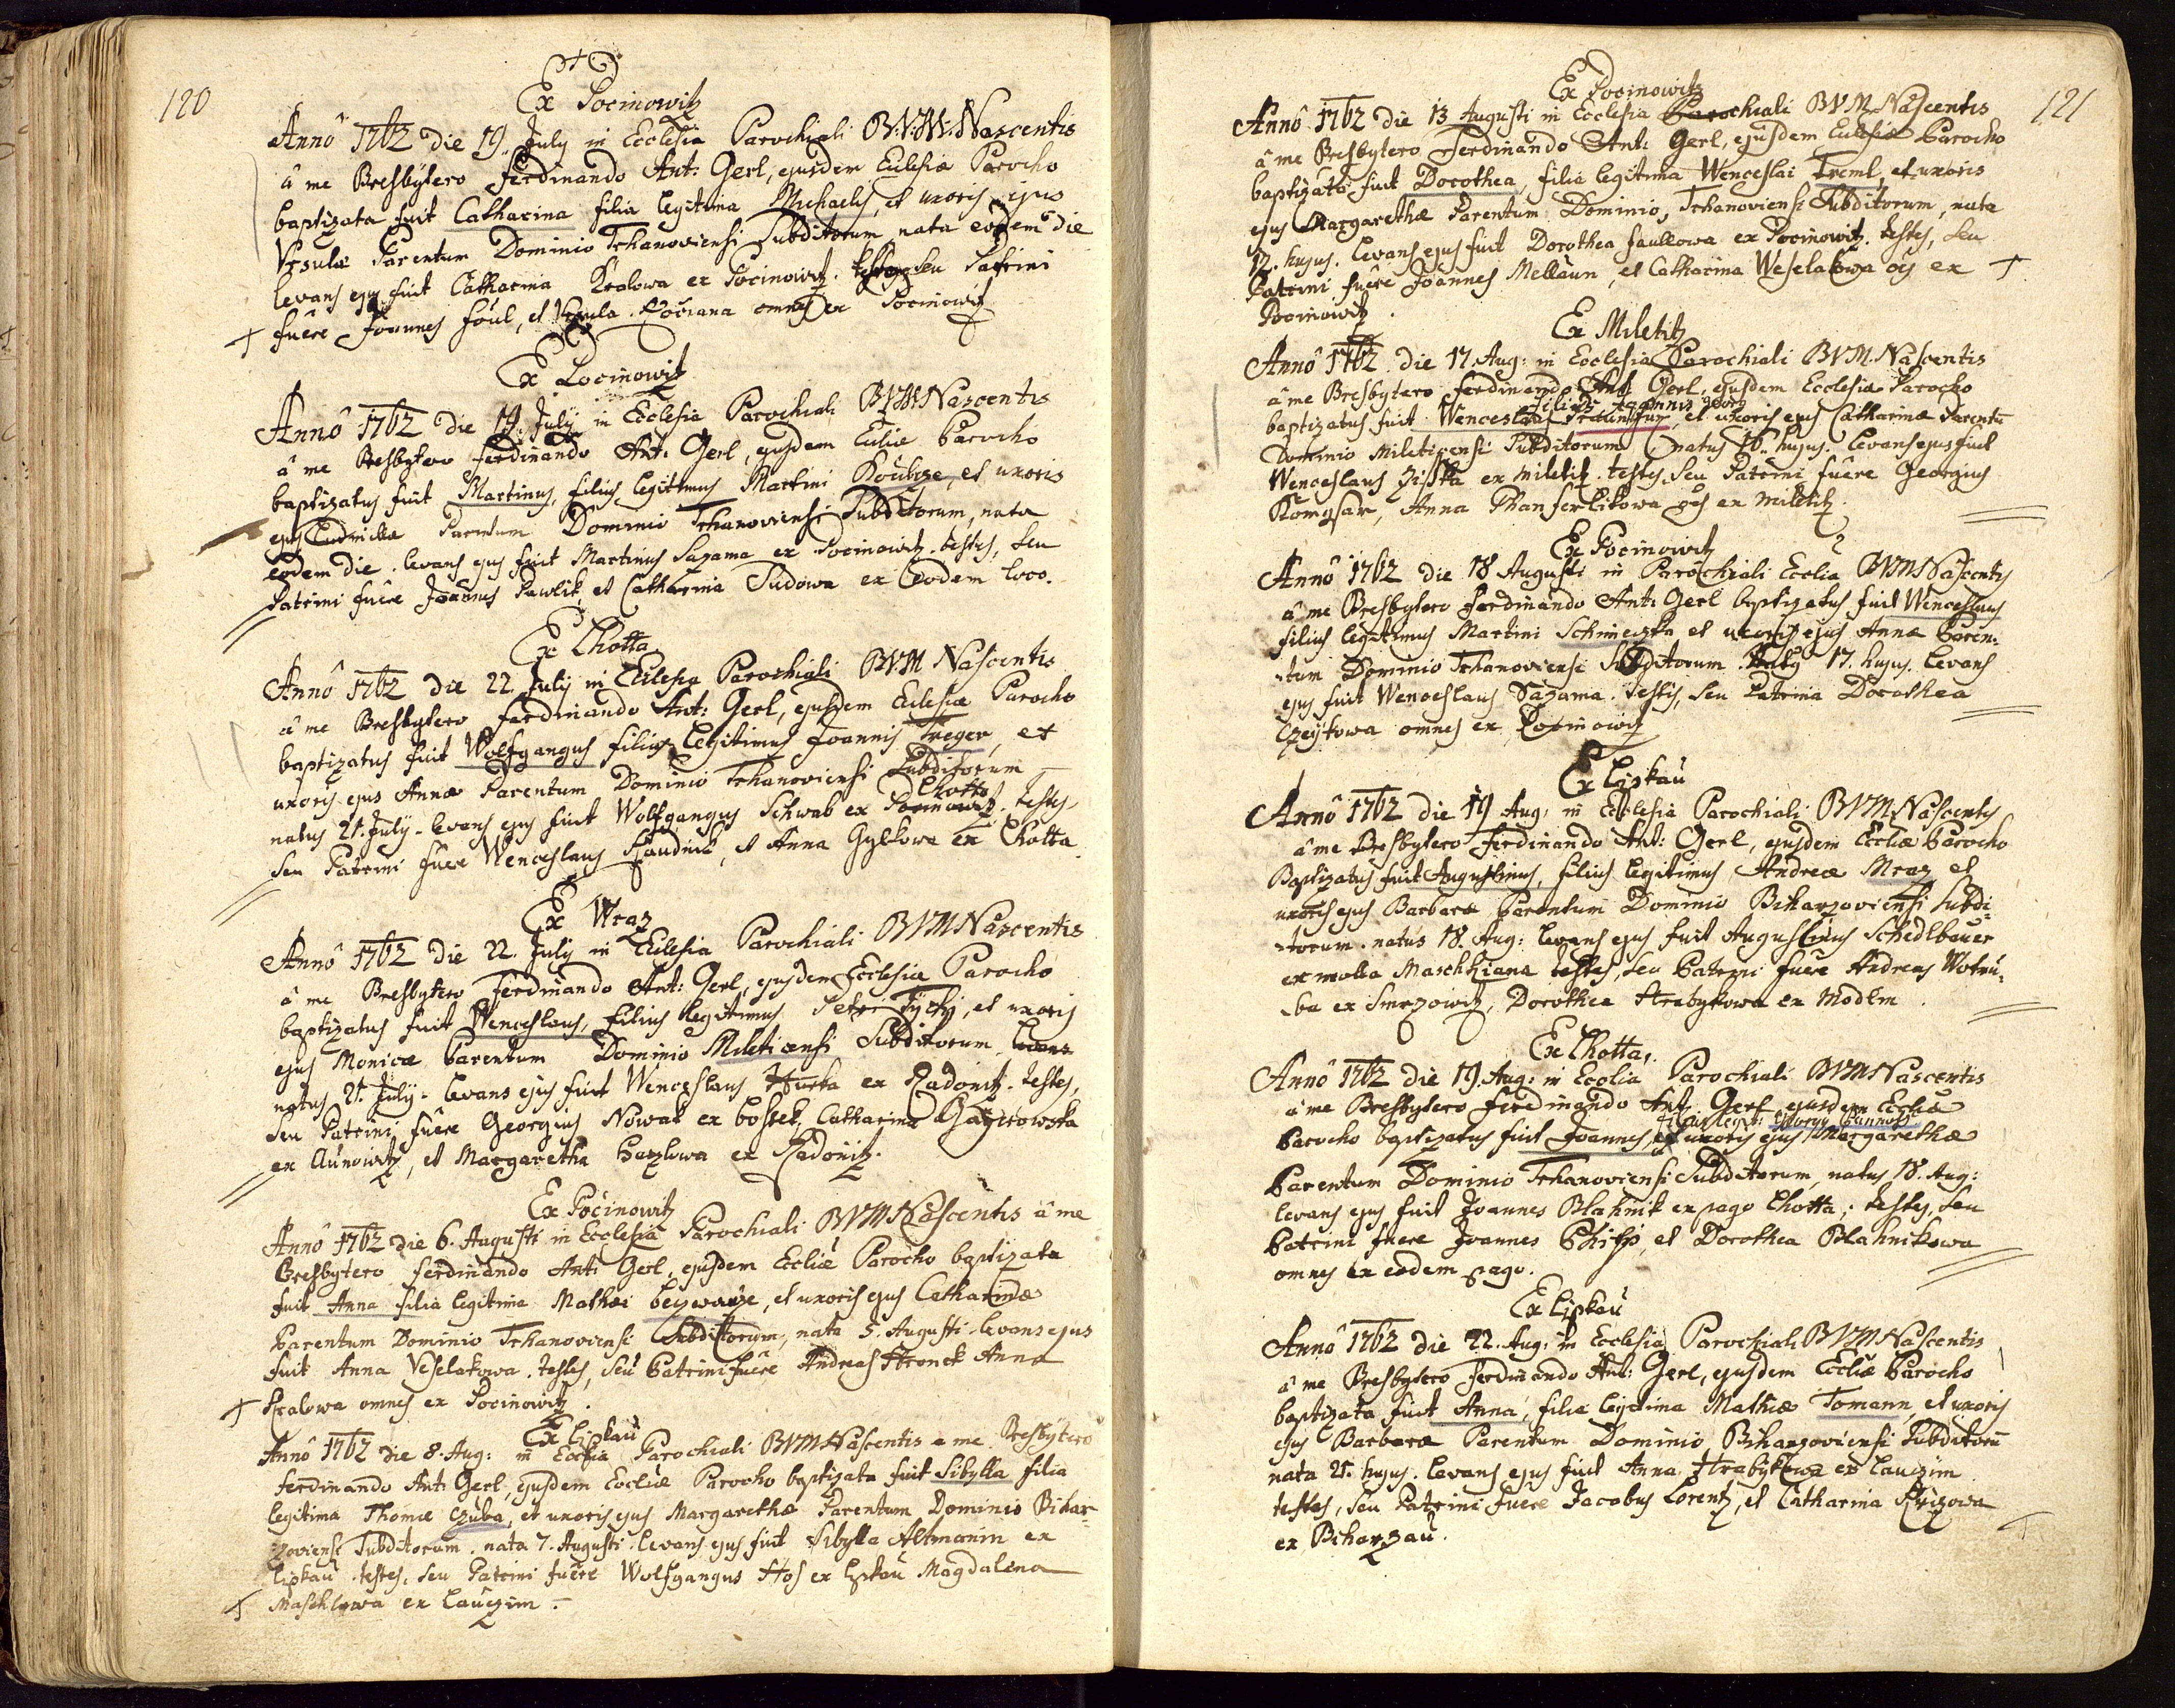 120
Ex Pocinowitz
Annô 1762 die 19. July in Ecclesia Parochiali B:V:M: Nascentis
â me Presbytero Ferdinando Ant: Gerl, ejusdem Eclesiæ Parocho
baptizata fuit Catharina filia legitima Michaelis, et uxoris ejus
Ursulæ Parentum Dominio Trhanoviensi Subditorum, nata eodem die
levans ejus fuit Catharina Kralowa ex Pocinowitz. testes, seu Patrini
fuêre Joannes Foul, et Ursula omnes ex Pocinowitz
Ex Pocinowitz
Annô 1762 die 19. July in Ecclesia Parochiali BVM Nascentis
â me Presbytero Ferdinando Ant: Gerl, ejusdem Eccliæ Parocho
baptizatus fuit Martinus, filius legitimus Martini et uxoris
ejus Ludmillæ Parentum Dominio Trhanoviensi Subditorum, nata
eodem die. levans ejus fuit Martinus Sazama ex Pocinowitz. testes, seu
Patrini fuêre Joannes Pawlik, et Catharina Dudowa ex eodem loco.
Ex Lhotta
Annô 1762 die 22. July in Eclesia Parochiali BVM Nascentis
â me Presbytero Ferdinando Ant: Gerl, ejusdem Eclesiæ Parocho
baptizatus fuit Wolfgangus filius legitimus Joannis Treger, et
uxoris ejus Annæ Parentum Dominio Trhanoviensi Subditorum
Lhotta
natus 21. July. levans ejus fuit Wolfgangus Schwab ex Pocinowitz. testes,
seu Patrini fuêre Wenceslaus et Anna ex Lhotta
Ex Wraz
Annô 1762 die 22. July in Eclesia Parochiali BVM Nascentis
â me Presbytero Ferdinando Ant: Gerl, ejusdem Ecclesiæ Parocho
baptizatus fuit Wenceslaus, filius legitimus Petri et uxoris
ejus Monicæ Parentum Dominio Miletičensi Subditorum, levans
natus 21. July. levans ejus fuit Wenceslaus Hurka ex Radonitz. testes,
seu Patrini fuêre Georgius Nowak ex Bostek, Catharina
ex Aunowitz, et Margaretha ex Radonitz.
Ex Pocinowitz
Annô 1762 die 6. Augusti in Ecclesia Parochiali BVM Nascentis â me
Presbytero Ferdinando Ant: Gerl, ejusdem Eccliæ Parocho baptizata
fuit Anna filia legitima Mathæi et uxoris ejus Catharinæ
Parentum Dominio Trhanoviensi Subditorum, nata 5. Augusti. levans ejus
fuit Anna Veselakowa. testes, seu Patrini fuêre Andreas Anna
Kralowa omnes ex Pocinowitz.
Ex Liskau
Annô 1762 die 8. Aug: in Ecclia Parochiali BVM Nascentis a me Presbytero
Ferdinando Ant: Gerl, ejusdem Eccliæ Parocho baptizata fuit Sibylla filia
legitima Thomæ Czuba, et uxoris ejus Margarethæ Parentum Dominio Bihar-
zoviensi Subditorum. nata 7. Augusti. levans ejus fuit Sibylla Altmanin ex
Liskau. testes, seu Patrini fuêre Wolfgangus Hos ex Liskau Magdalena
Maschkowa ex Lauczim.
121
Ex Pocinowitz
Annô 1762 die 13 Augusti in Ecclesia Parochiali BVM Nascentis
â me Presbytero Ferdinando Ant: Gerl, ejusdem Eclesiæ Parocho
baptizata fuit Dorothea filia legitima Wenceslai Treml, et uxoris
ejus Margarethæ Parentum Dominio, Trhanoviensi Subditorum, nata
12. hujus. levans ejus fuit Dorothea ex Pocinowitz. testes, seu
Patrini fuêre Joannes Mellaun, et Catharina Weselakowa oẽs ex
Pocinowitz.
Ex Miletitz
Annô 1762. die 17. Aug: in Ecclesia Parochiali BVM. Nascentis
â me Presbytero Ferdinando Ant: Gerl, ejusdem Ecclesiæ Parocho
filius Joannis Georg
baptizatus fuit Wenceslaus et uxoris ejus Catharinæ Parentũ
Dominio Miletičensi Subditorum natus 16. hujus. levans ejus fuit
Wenceslaus Zisska ex Miletitz. testes, seu Patrini fuêre Georgius
Anna oẽs ex Miletitz.
Ex Pocinowitz
Annô 1762 die 18 Augusti in Parochiali Ecclia BVM Nascentis
â me Presbytero Ferdinando Ant: Gerl baptizatus fuit Wenceslaus
filius legitimus Martini et uxoris ejus Annæ Paren-
tum Dominio Trhanoviensi Subditorum. natus 17. hujus. levans
ejus fuit Wenceslaus Sazama. testis, seu Patrina Dorothea
omnes ex Pocinowitz
Ex Liskau
Annô 1762 die 19 Aug: in Ecclesia Parochiali BVM Nascentis
â me Presbytero Ferdinando Ant: Gerl, ejusdem Eccliæ Parocho
Baptizatus fuit Augustinus, filius legitimus Andreæ Mraz et
uxoris ejus Barbaræ Parentum Dominio Biharzoviensi Subdi-
torum. natus 18. Aug: levans ejus fuit Augustinus Schedlbauer
ex molla Maschkiana testes, seu Patrini fuêre Andreas Wotru-
ba ex Smrzowitz, Dorothea Hrabykowa ex Modlin
Ex Lhotta.
Annô 1762 die 19. Aug: in Ecclia Parochiali BVM Nascentis
â me Presbytero Ferdinando Ant: Gerl ejusdem Eccliæ
filius legit: Georgy
Parocho baptizatus fuit Joannes, et uxoris ejus Margarethæ
Parentum Dominio Trhanoviensi Subditorum, natus 18. Aug:
levans ejus fuit Joannes Blahnik ex pago Lhotta; testes, seu
Patrini fuere Joannes Philip, et Dorothea Blahnikowa
omnes ex eodem pago.
Ex Liskau
Annô 1762 die 22. Aug: in Ecclesia Parochiali BVM Nascentis
â me Presbytero Ferdinando Ant: Gerl, ejusdem Eccliæ Parocho
baptizata fuit Anna, filia legitima Mathiæ Tomann, et uxoris
ejus Barbaræ Parentum Dominio Biharzoviensi Subditorũ
nata 21. hujus. levans ejus fuit Anna Hrabykowa ex Lauczim
testes, seu Patrini fuere Jacobus Lorentz, et Catharina
ex Biharzau.